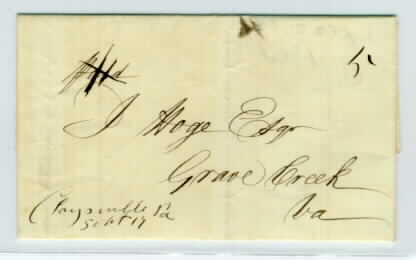 Paid
5
J Hoge Esqr
Grave Creek
Va
Claysville Pa
Sept 19